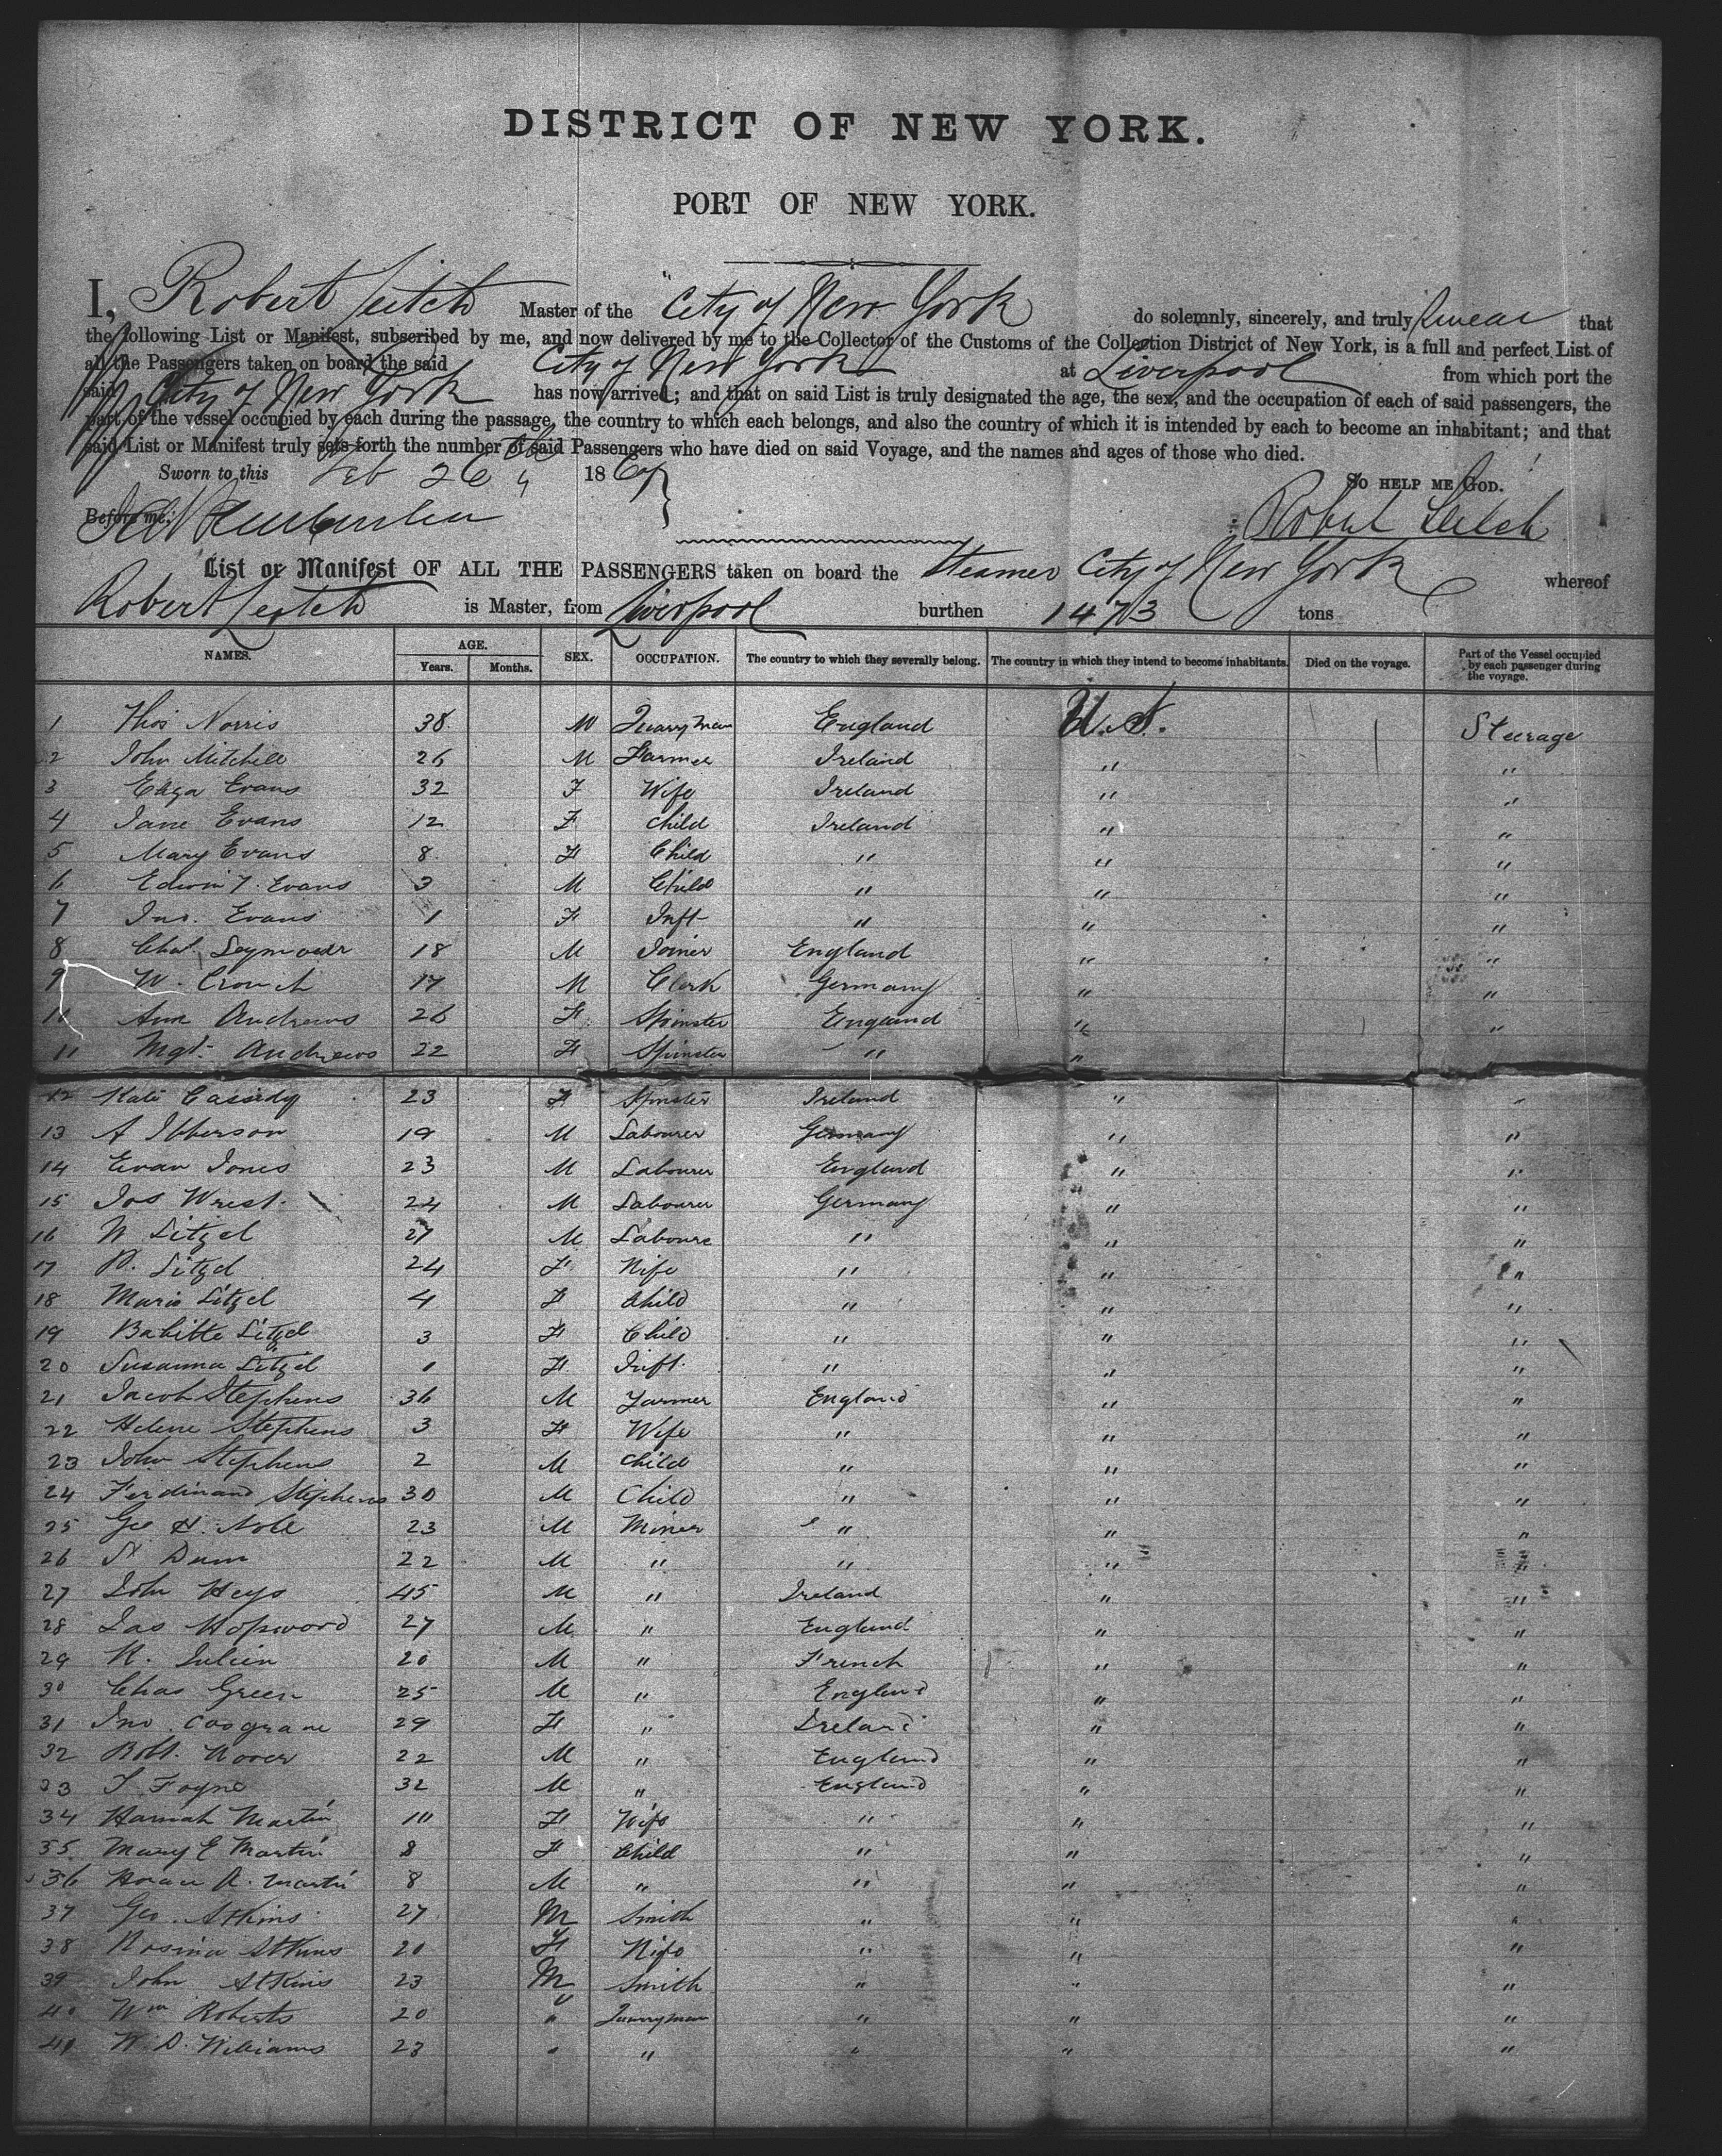 DISTRICT OF NEW YORK.
PORT OF NEW YORK.
I, Robert Leitch Master of the "City of New York do solemnly, sincerely, and truly swear that
the following List or Manifest, subscribed by me, and now delivered by me to the Collector of the Customs of the Collection District of New York, is a full and perfect List of
all the Passengers taken on board the said City of New York at Liverpool from which port the
said City of New York has now arrived; and that on said List is truly designated the age, the sex, and the occupation of each of said passengers, the
part of the vessel occupied by each during the passage, the country to which each belongs, and also the country of which it is intended by each to become an inhabitant; and that
said List or Manifest truly sets forth the number of said Passengers who have died on said Voyage, and the names and ages of those who died.
Sworn to this Feb 26th 186 SO HELP ME GOD.
Before me, Robert Leitch
List or Manifest OF ALL THE PASSENGERS taken on board the Steamer City of New York whereof
Robert Leitch is Master, from Liverpool burthen 1473 tons
NAMES. AGE. Years. Months. SEX. OCCUPATION. The country to which they severally belong. The country in which they intend to become inhabitants. Died on the voyage. Part of the Vessel occupied by each passenger during the voyage.
1 Thos Norris 38 M Quarryman England U.S. Steerage
2 John Mitchell 26 M Farmer Ireland " "
3 Eliza Evans 32 F Wife Ireland " "
4 Jane Evans 12 F Child Ireland " "
5 Mary Evans 8 F Child " " "
6 Edwin T. Evans 3 M Child " " "
7 Jno. Evans 1 F Inft " " "
8 Chas. Seymour 18 M Joiner England " "
9 W. Crouch 17 M Clerk Germany " "
10 Ann Andrews 26 F Spinster England " "
11 Mgt. Andrews 22 F Spinster " " "
12 Kate Cassidy 23 F Spinster Ireland " "
13 A Ibberson 19 M Labourer Germany " "
14 Evan Jones 23 M Labourer England " "
15 Jos Wrest. 24 M Labourer Germany " "
16 W Litzel 27 M Laboure " " "
17 Litzel 24 F Wife " " "
18 Maria Litzel 4 F Child " " "
19 Babitte Litzel 3 F Child " " "
20 Susanna Litzel 1 F Inft. " " "
21 Jacob Stephens 36 M Farmer England " "
22 Helene Stephens 3 F Wife " " "
23 John Stephens 2 M Child " " "
24 Ferdinand Stephens 30 M Child " " "
25 Geo H. Noll 23 M Miner " " "
26 Dunn 22 M " " " "
27 John Heys 45 M " Ireland " "
28 Jas Hopwood 27 M " England " "
29 Julien 20 M " French " "
30 Chas Green 25 M " England " "
31 Jno. Cosgrave 29 F " Ireland " "
32 Robt. 22 M " England " "
33 Fayne 32 M " England " "
34 Hannah Martin F Wife " " "
35 Mary E Martin 8 F Child " " "
36 Horace A. Martin 8 M " " " "
37 Geo. Atkins 27 M Smith " " "
38 Rosina Atkins 20 F Wife " " "
39 John Atkins 23 M Smith " " "
40 Wm Roberts 20 " Quarryman " " "
41 W. D. Williams 23 " " " " "